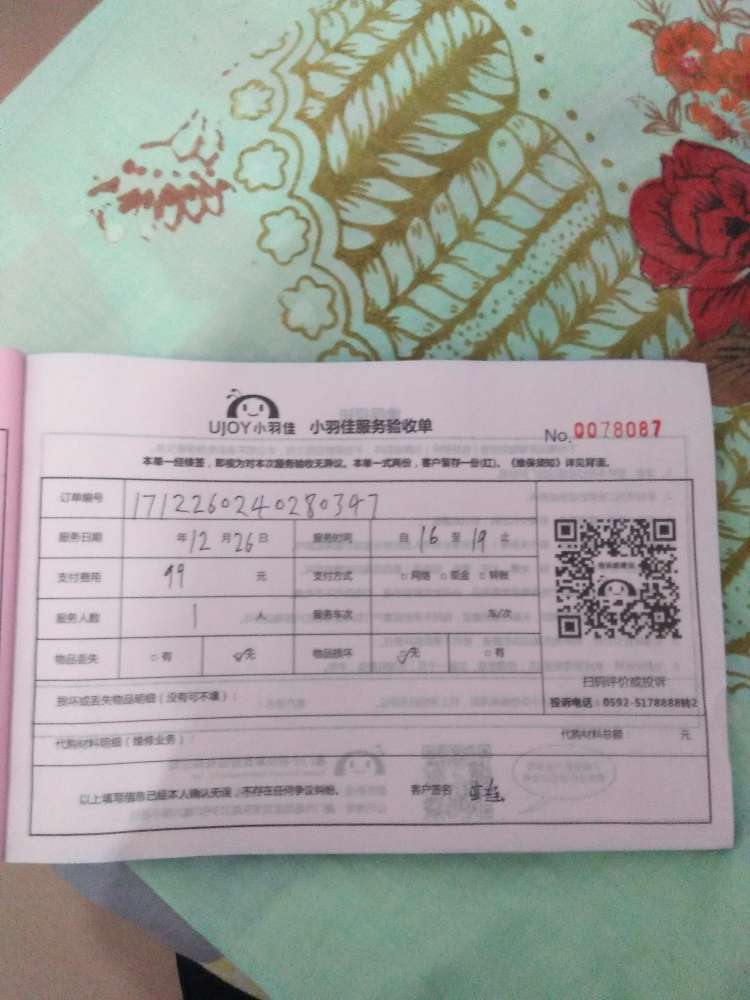 UJOY小羽佳 小羽佳服务验收单 No.0078087
本单一经接签，即视为对本次服务验收无异议。本单一式两份，客户留存一份(红)。《维保须知》详见背面。
订单编号 1712260240280347
服务日期 年12月26日 服务时间 自16至19止
支付费用 99 元 支付方式 □网络 □现金 □转账
服务人数 1 人 服务车次 车/次
物品丢失 □有 ☑无 物品损坏 ☑无 □有
扫码评价或投诉
损坏或丢失物品明细（没有可不填）： 投诉电话：0592-5178888转2
代购材料明细（维修业务）： 代购材料总额： 元
以上填写信息已经本人确认无误，不存在任何争议纠纷。 客户签名